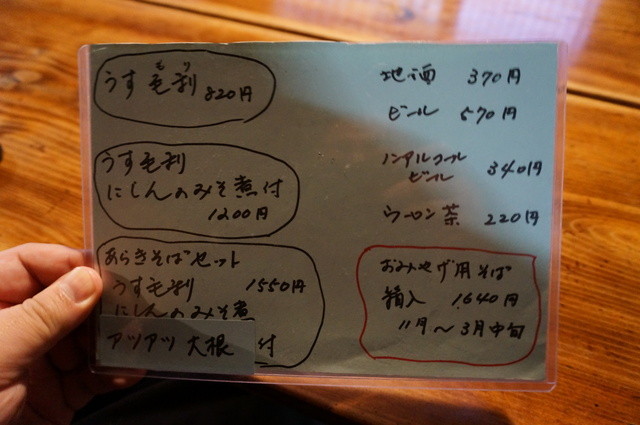 うす毛利 820円
もり
うす毛利
にしんのみそ煮付
1200円
あらきそばセット
うす毛利 1550円
にしんのみそ煮
アツアツ大根 付
地酒 370円
ビール 570円
ノンアルコール
ビール 340円
ウーロン茶 220円
おみやげ用そば
箱入 1640円
11月〜3月中旬